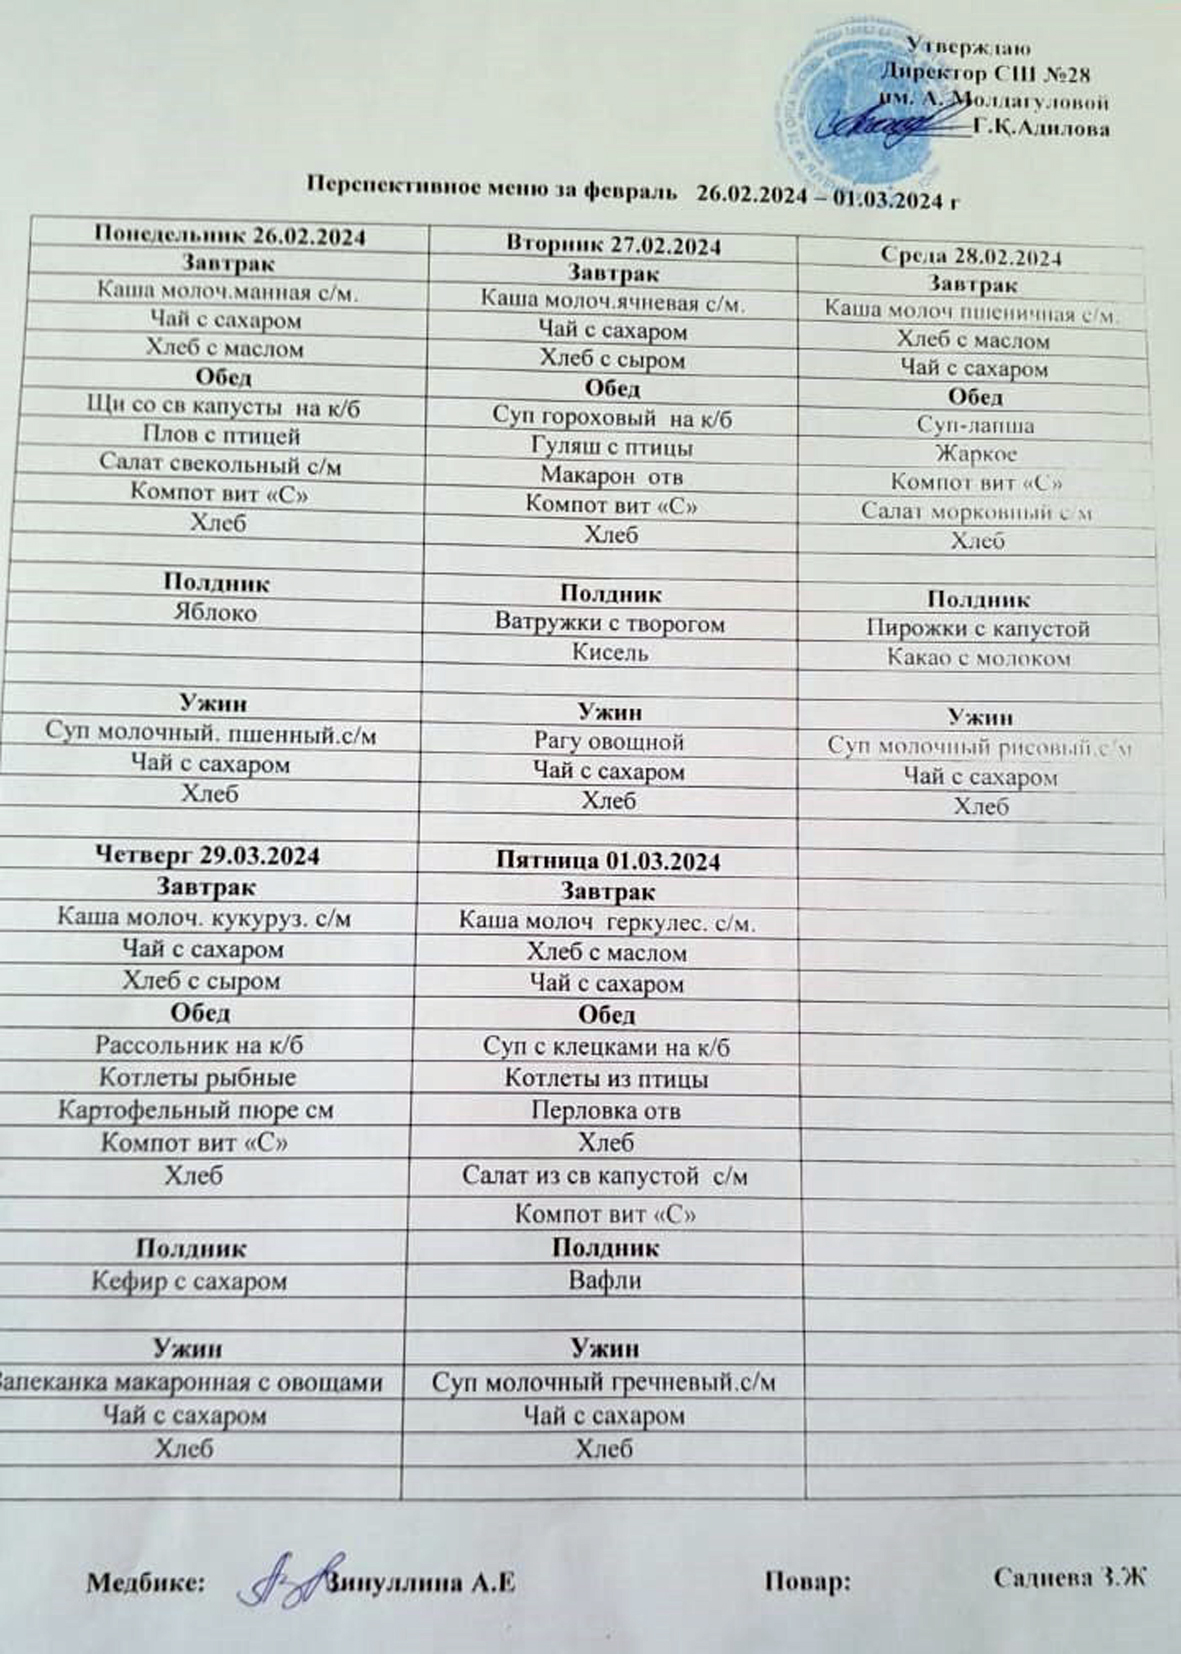 Утверждаю
Директор СШ №28
им. А. Молдагуловой
Г.Қ.Адилова
Перспективное меню за февраль 26.02.2024 – 01.03.2024 г
Понедельник 26.02.2024
Завтрак
Каша молоч.манная с/м.
Чай с сахаром
Хлеб с маслом
Обед
Щи со св капусты на к/б
Плов с птицей
Салат свекольный с/м
Компот вит «С»
Хлеб
Полдник
Яблоко
Ужин
Суп молочный. пшенный.с/м
Чай с сахаром
Хлеб
Вторник 27.02.2024
Завтрак
Каша молоч.ячневая с/м.
Чай с сахаром
Хлеб с сыром
Обед
Суп гороховый на к/б
Гуляш с птицы
Макарон отв
Компот вит «С»
Хлеб
Полдник
Ватружки с творогом
Кисель
Ужин
Рагу овощной
Чай с сахаром
Хлеб
Среда 28.02.2024
Завтрак
Каша молоч пшеничная с/м.
Хлеб с маслом
Чай с сахаром
Обед
Суп-лапша
Жаркое
Компот вит «С»
Салат морковный с/м
Хлеб
Полдник
Пирожки с капустой
Какао с молоком
Ужин
Суп молочный рисовый.с/м
Чай с сахаром
Хлеб
Четверг 29.03.2024
Завтрак
Каша молоч. кукуруз. с/м
Чай с сахаром
Хлеб с сыром
Обед
Рассольник на к/б
Котлеты рыбные
Картофельный пюре см
Компот вит «С»
Хлеб
Полдник
Кефир с сахаром
Ужин
Запеканка макаронная с овощами
Чай с сахаром
Хлеб
Пятница 01.03.2024
Завтрак
Каша молоч геркулес. с/м.
Хлеб с маслом
Чай с сахаром
Обед
Суп с клецками на к/б
Котлеты из птицы
Перловка отв
Хлеб
Салат из св капустой с/м
Компот вит «С»
Полдник
Вафли
Ужин
Суп молочный гречневый.с/м
Чай с сахаром
Хлеб
Медбике: Зинуллина А.Е Повар: Садиева З.Ж